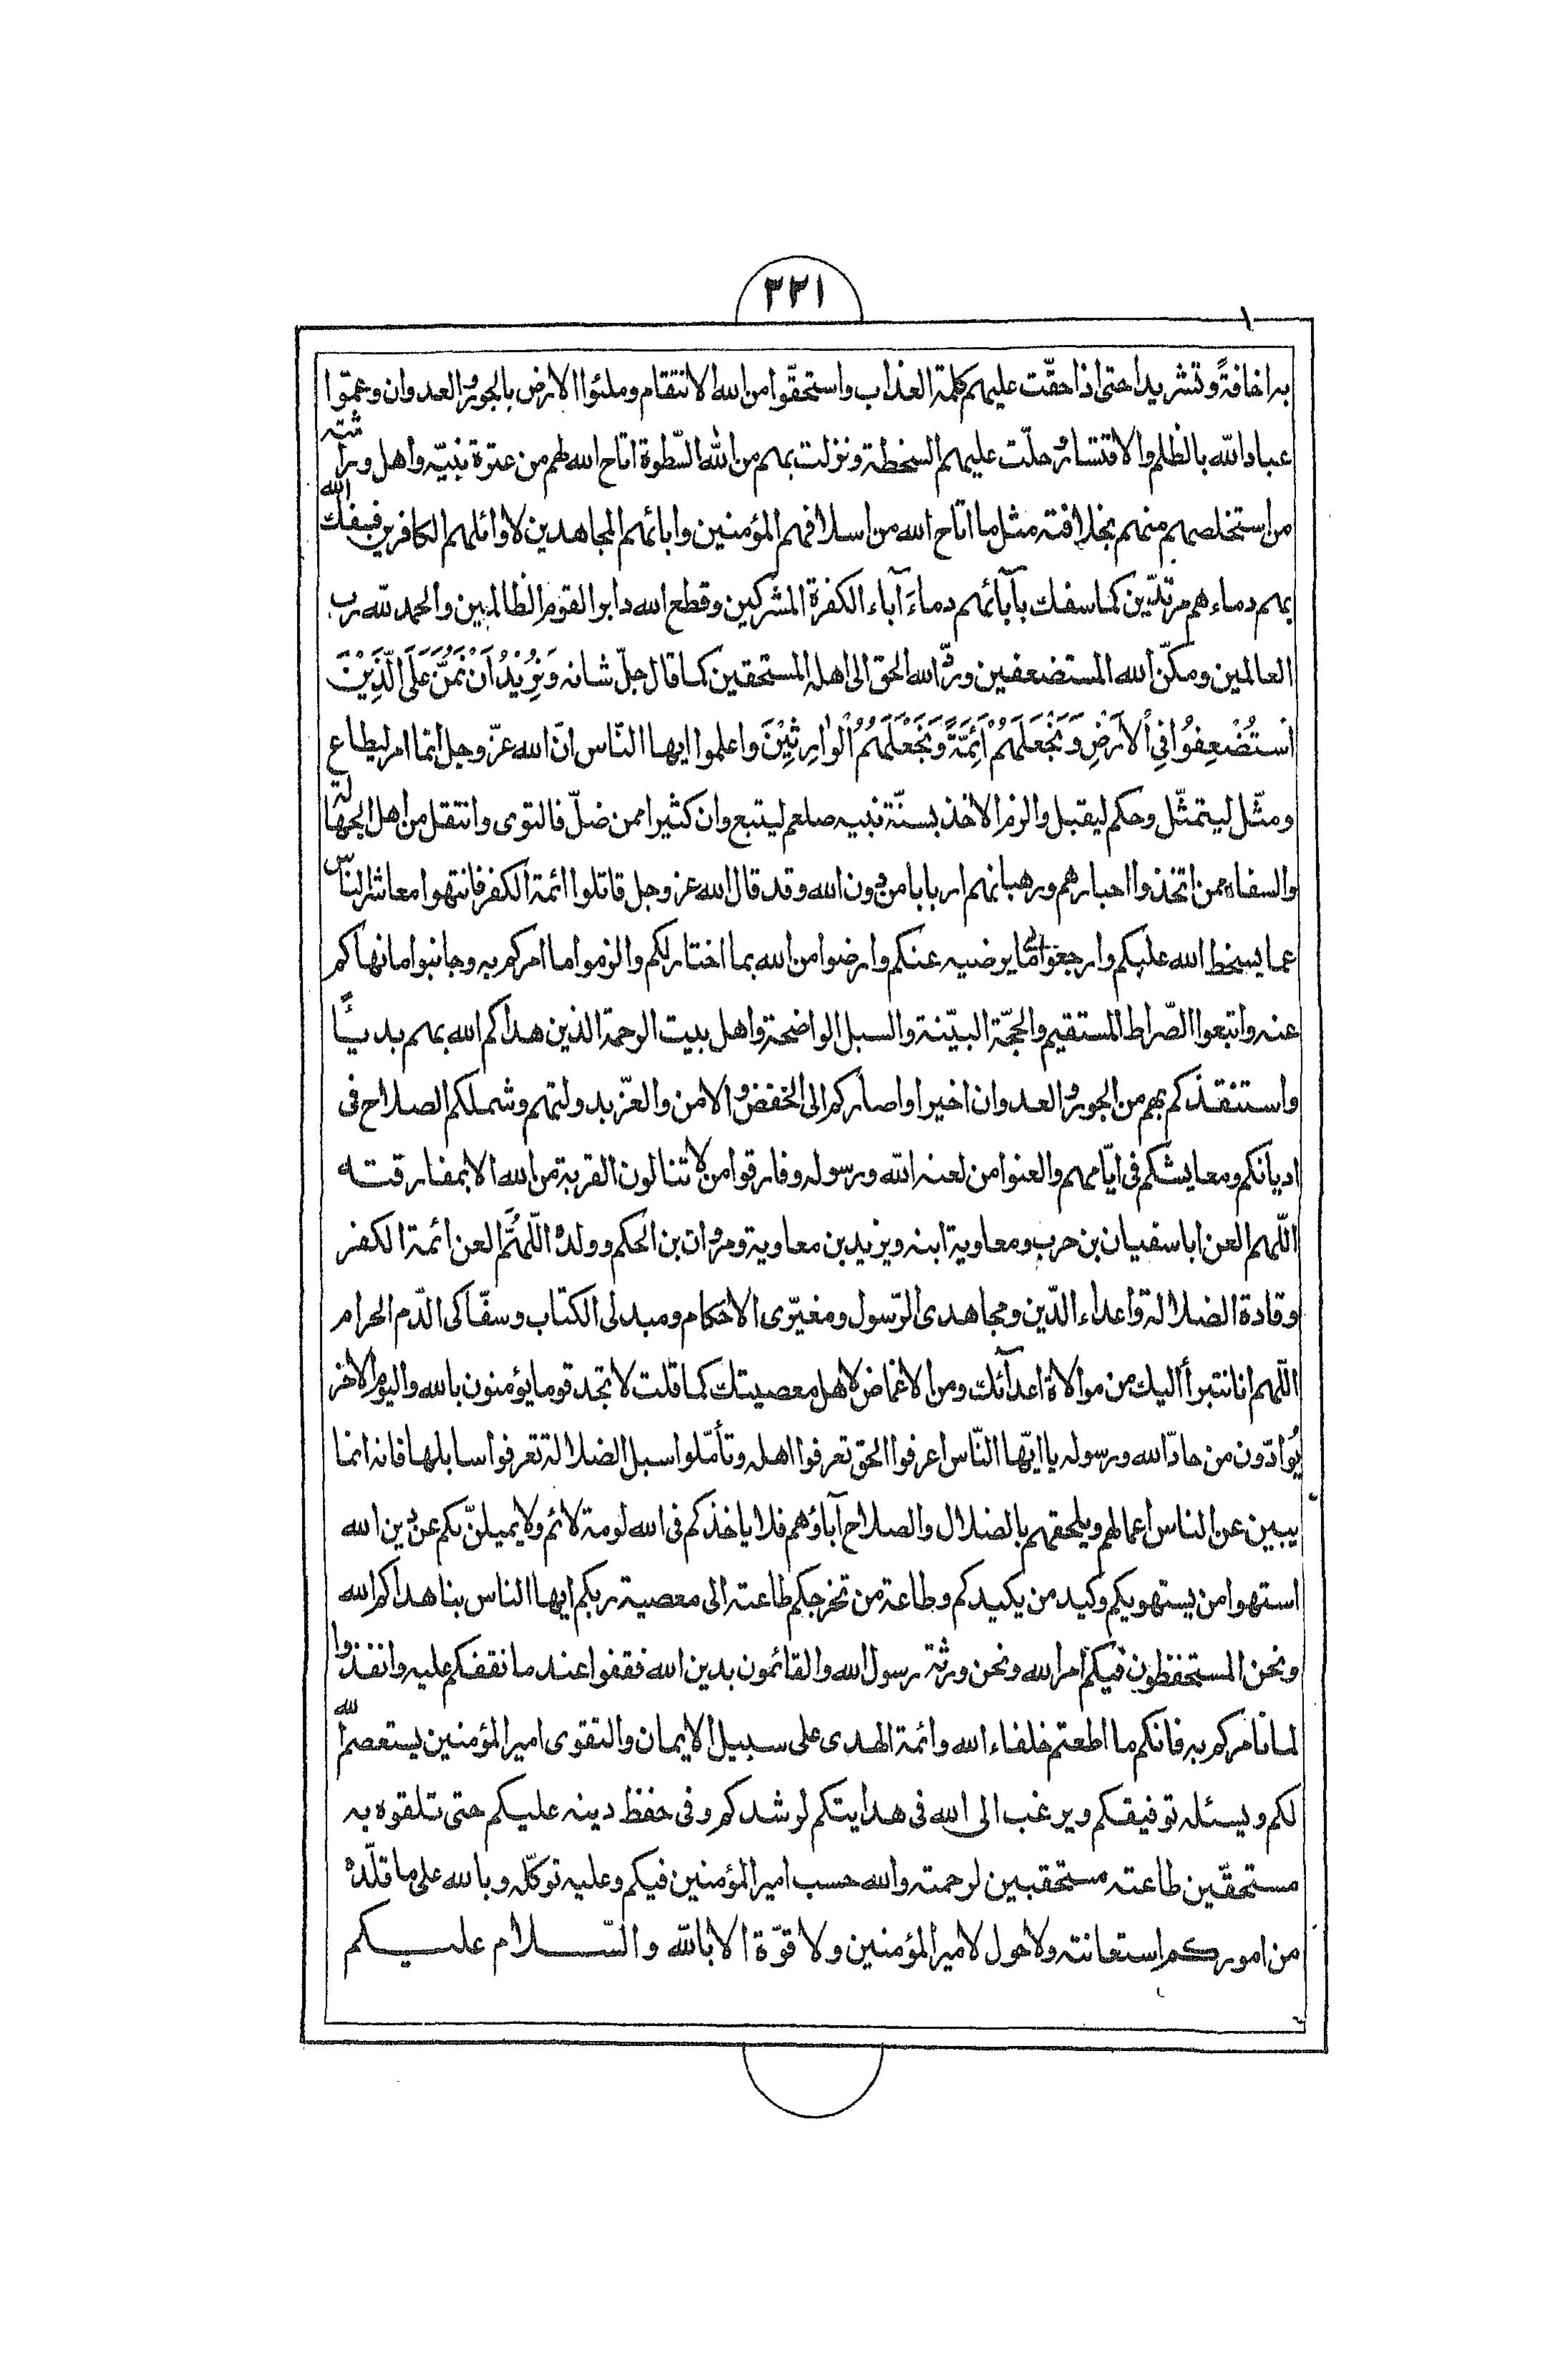 ٣٢١
به اخافةً وتشريدا حتى اذا حقّت عليهم كلمة العذاب واستحقّوا من الله الانتقام وملئوا الارض بالجور والعدوان وعمّوا
عباد الله بالظلم والاقتسار وحلّت عليهم السخطة ونزلت بهم من الله السّطوة اتاح الله لهم من عترة نبيّه واهل وراثته
من استخلصهم منهم بخلافته مثل ما اتاح الله من اسلافهم المؤمنين وابائهم المجاهدين لاوائلهم الكافرين فسفك الله
بهم دماءهم مرتدّين كما سفك بآبائهم دماءَ آباء الكفرة المشركين وقطع الله دابر القوم الظالمين والحمد لله رب
العالمين ومكّن الله المستضعفين وردّ الله الحق الى اهله المستحقين كما قال جلّ شانه وَنُرِيْدُ اَنْ نَمُنَّ عَلَى الَّذِيْنَ
اسْتُضْعِفُوْا فِي الْاَرْضِ وَنَجْعَلَهُمْ اَئِمَّةً وَنَجْعَلَهُمُ الْوَارِثِيْنَ واعلموا ايها النّاس انّ الله عزّ وجل انّما امر ليطاع
ومثّل ليتمثّل وحكم ليقبل والزم الاخذ بسنّة نبيه صلعم ليتبع وان كثيرا ممن ضلّ فالتوى وانتقل من اهل الجهالة
والسفاه ممن اتخذوا احبارهم ورهبانهم اربابا من دون الله وقد قال الله عز وجل قاتلوا ائمة الكفر فانتهوا معاشر النّاس
عما يسخط الله عليكم وارجعوا الى ما يرضيه عنكم وارضوا من الله بما اختار لكم والزموا ما امركم به وجانبوا ما نهاكم
عنه واتبعوا الصّراط المستقيم والحجّة البيّنة والسبل الواضحة واهل بيت الرحمة الذين هداكم الله بهم بديئًا
واستنقذكم بهم من الجور والعدوان اخيرا واصاركم الى الخفض والامن والعزّ بدولتهم وشملكم الصلاح فى
اديانكم ومعايشكم فى ايّامهم والعنوا من لعنه الله ورسوله وفارقوا من لا تنالون القربة من الله الا بمفارقته
اللّهم العن ابا سفيان بن حرب ومعاوية ابنه ويزيد بن معاوية ومروان بن الحكم وولدهُ اللّهُمَّ العن ائمة الكفر
وقادة الضلالة واعداء الدّين ومجاهدى الرّسول ومغيّرى الاحكام ومبدلى الكتاب وسفّاكى الدّم الحرام
اللّهم انا نتبرأ اليك من موالاة اعدآئك ومن الاغماض لاهل معصيتك كما قلت لا تجد قوما يؤمنون بالله واليوم الاخر
يُوادّون من حادّ الله ورسوله يا ايّها النّاس اعرفوا الحق تعرفوا اهله وتأمّلوا سبل الضلالة تعرفوا سابلها فانه انما
يبين عن الناس اعمالهم ويلحقهم بالضلال والصلاح آباؤهم فلا ياخذكم فى الله لومة لائم ولا يميلنّ بكم عن دين الله
استهوا من يستهويكم وكيد من يكيدكم وطاعة من تخرجكم طاعته الى معصية ربكم ايها الناس بنا هداكم الله
ونحن المستحفظون فيكم امر الله ونحن ورثة رسول الله والقائمون بدين الله فقفوا عند ما نقفكم عليه وانفذوا
لما نامركم به فانكم ما اطعتم خلفاء الله وائمة الهدى على سبيل الايمان والتقوى امير المؤمنين يستعصم الله
لكم ويسئله توفيقكم ويرغب الى الله فى هدايتكم لرشدكم وفى حفظ دينه عليكم حتى تلقوه به
مستحقّين طاعته مستحقبين لرحمته والله حسب امير المؤمنين فيكم وعليه توكّله وبالله على ما قلّدهُ
من اموركم استعانته ولا حول لامير المؤمنين ولا قوّة الا بالله والسّلام عليكم